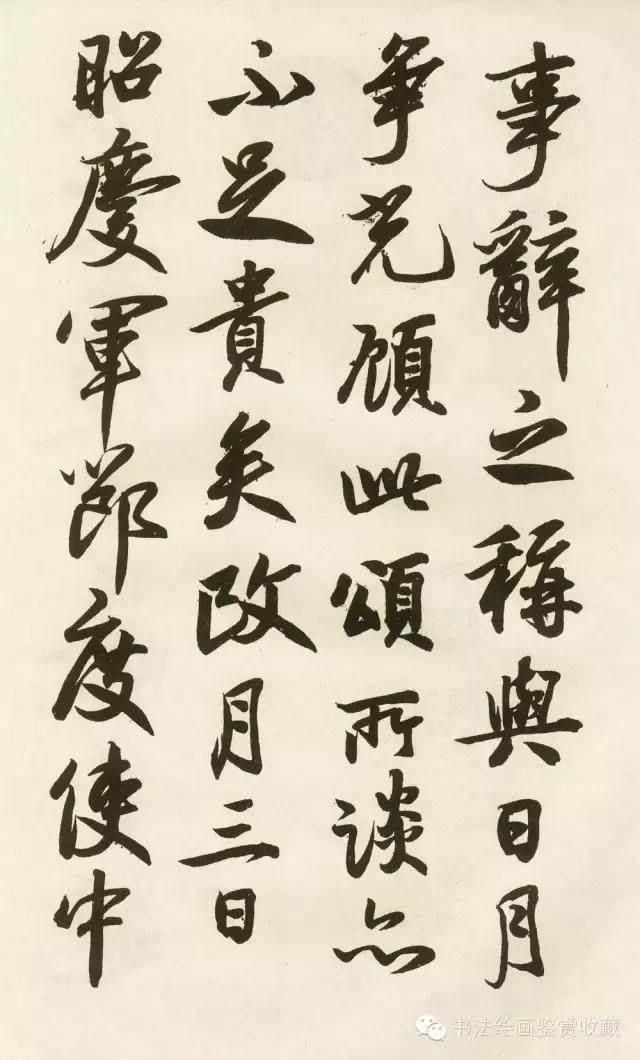 事辭之稱與日月
爭光顧此頌所談亦
不足貴矣改月三日
昭慶軍節度使中
书法绘画鉴赏收藏